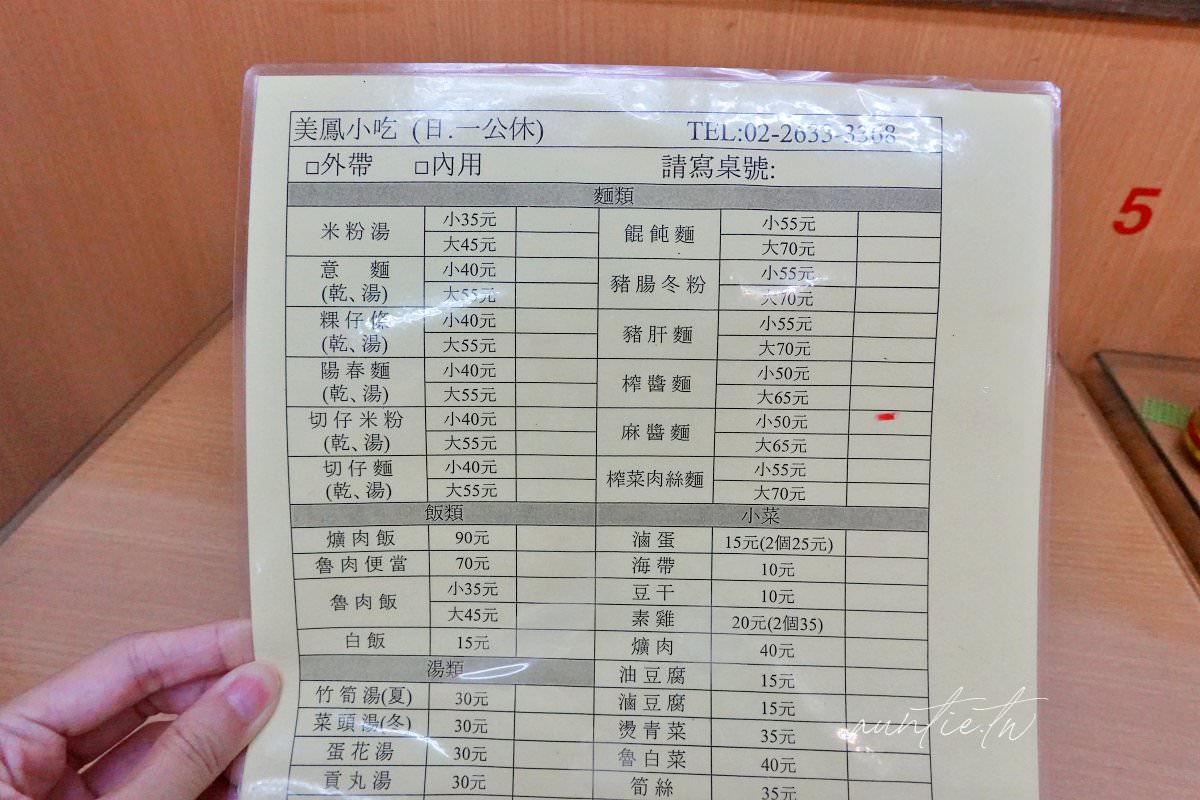 美鳳小吃 (日.一公休) TEL:02-2635-3368
□外帶 □內用 請寫桌號:
麵類
米粉湯 小35元 餛飩麵 小55元
大45元 大70元
意 麵 (乾、湯) 小40元 豬腸冬粉 小55元
大55元 大70元
粿仔條 (乾、湯) 小40元 豬肝麵 小55元
大55元 大70元
陽春麵 (乾、湯) 小40元 榨醬麵 小50元
大55元 大65元
切仔米粉 (乾、湯) 小40元 麻醬麵 小50元
大55元 大65元
切仔麵 (乾、湯) 小40元 榨菜肉絲麵 小55元
大55元 大70元
飯類 小菜
爌肉飯 90元 滷蛋 15元(2個25元)
魯肉便當 70元 海帶 10元
魯肉飯 小35元 豆干 10元
大45元 素雞 20元(2個35)
白飯 15元 爌肉 40元
湯類 油豆腐 15元
竹筍湯(夏) 30元 滷豆腐 15元
菜頭湯(冬) 30元 燙青菜 35元
蛋花湯 30元 魯白菜 40元
貢丸湯 30元 筍絲 35元
5
auntie.tw